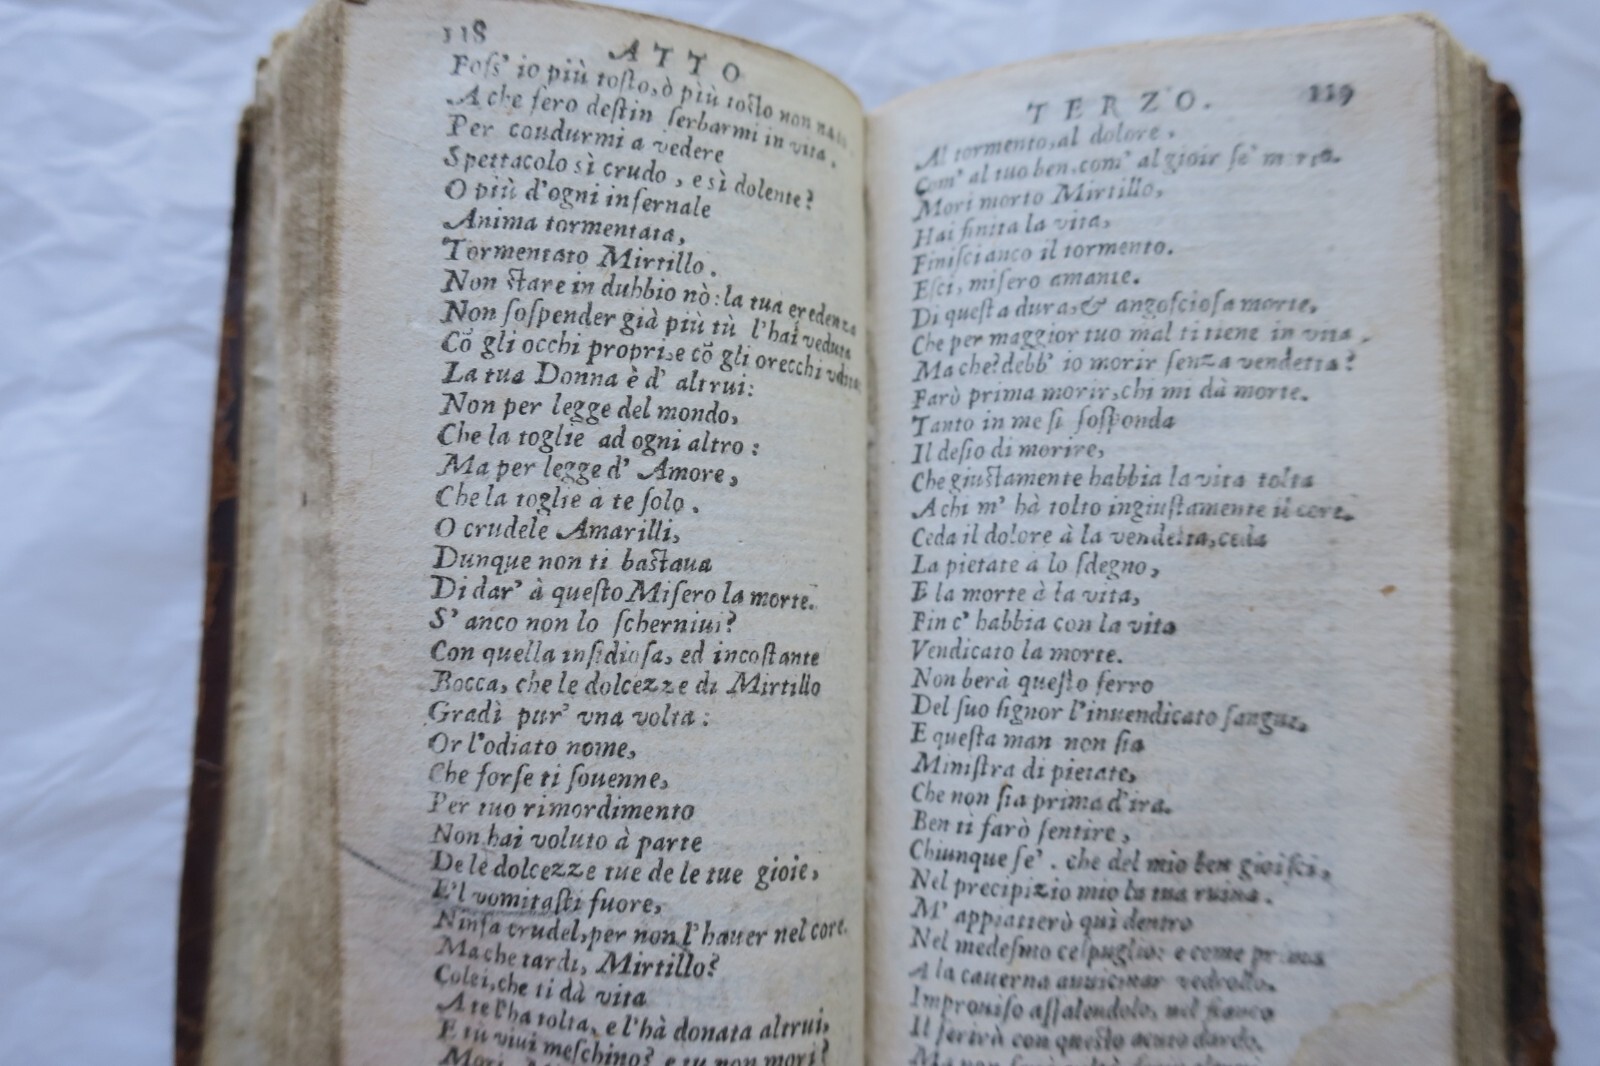 118
ATTO
Foſs' io più toſto, ò più toſto non nato.
A che fero deſtin ſerbarmi in vita.
Per condurmi a vedere
Spettacolo sì crudo, e sì dolente?
O più d'ogni infernale
Anima tormentata,
Tormentato Mirtillo.
Non ſtare in dubbio nò: la tua credenza
Non ſoſpender già più tù l'hai veduta
Cõ gli occhi propri, e cõ gli orecchi vdita:
La tua Donna è d' altrui:
Non per legge del mondo,
Che la toglie ad ogni altro:
Ma per legge d' Amore,
Che la toglie à te ſolo.
O crudele Amarilli,
Dunque non ti baſtaua
Di dar' à queſto Miſero la morte.
S' anco non lo ſcherniui?
Con quella inſidioſa, ed incoſtante
Bocca, che le dolcezze di Mirtillo
Gradì pur' vna volta:
Or l'odiato nome,
Che forſe ti ſouenne,
Per tuo rimordimento
Non hai voluto à parte
De le dolcezze tue de le tue gioie,
E'l vomitaſti fuore,
Ninfa crudel, per non l'hauer nel core.
Ma che tardi, Mirtillo?
Colei, che ti dà vita
A te l'ha tolta, e l'hà donata altrui,
E tù viui meſchino? e tu non mori?
TERZO. 119
Al tormento, al dolore,
Com' al tuo ben, com' al gioir ſe' morto.
Mori morto Mirtillo,
Hai finita la vita,
Finiſci anco il tormento.
Eſci, miſero amante.
Di queſta dura, & angoſcioſa morte,
Che per maggior tuo mal ti tiene in vita.
Ma che? debb' io morir ſenza vendetta?
Farò prima morir, chi mi dà morte.
Tanto in me ſi ſoſponda
Il deſio di morire,
Che giuſtamente habbia la vita tolta
A chi m' hà tolto ingiuſtamente il core.
Ceda il dolore à la vendetta, ceda
La pietate a lo ſdegno,
E la morte à la vita,
Fin c' habbia con la vita
Vendicato la morte.
Non berà queſto ferro
Del ſuo ſignor l'inuendicato ſangue,
E queſta man non ſia
Miniſtra di pietate,
Che non ſia prima d'ira.
Ben ti farò ſentire,
Chiunque ſe'. che del mio ben gioiſci,
Nel precipizio mio la tua ruina.
M' appiatterò quì dentro
Nel medeſmo ceſpuglio: e come prima
A la cauerna auuicinar vedrollo,
Improuiſo aſſalendolo, nel fianco
Il ferirà con queſto acuto dardo.